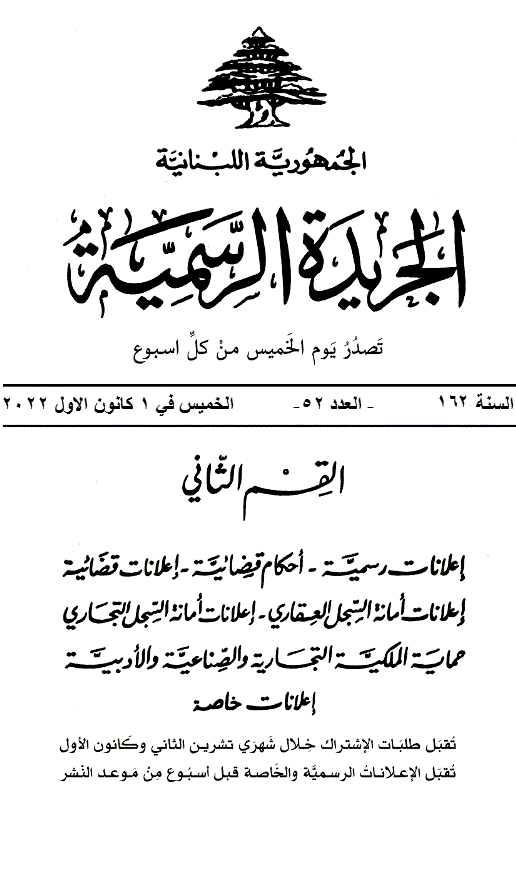 الجُمهُوريَّة اللبْنانيَّة
الجَريدَة الرسَّميَّة
تَصدُرُ يَوم الخَميس منْ كلِّ اسبوع
السنة ١٦٢ - العدد ٥٢- الخميس في ١ كانون الاول ٢٠٢٢
القِسْم الثّاني
إعلانات رسميَّة - أحكام قضائيَّة - إعلانات قضائية
إعلانات أمانة السِّجل العِقاري - إعلانات أمانة السِّجل التجاري
حماية الملكيَّة التجارية والصِّناعيَّة والأدبيَّة
إعلانات خاصة
تُقبَل طلبَات الإشتراك خِلال شَهرَي تشرين الثاني وكَانون الأول
تُقبَل الإعلاناتُ الرسميَّة والخَاصة قبل أسبُوع مِنْ مَوعد النّشر